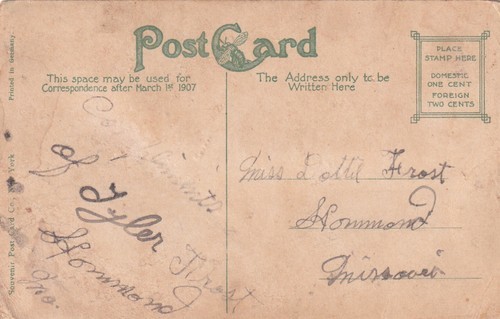 POST CARD
This space may be used for
Correspondence after March 1st 1907
The Address only to be
Written Here
PLACE
STAMP HERE
DOMESTIC
ONE CENT
FOREIGN
TWO CENTS
Printed in Germany.
Souvenir Post Card Co., New York
Compliments
of Tyler Frost
Hommond
Mo.
Miss Dottie Frost
Hommond
Missouri